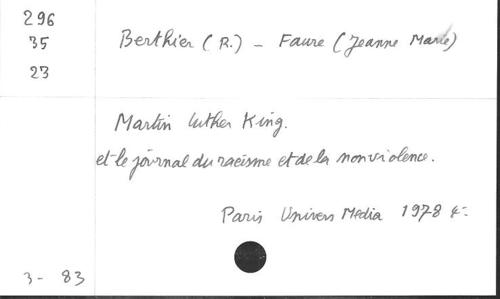 296
35
23
Berthier (R.) - Faure (Jeanne Marie)
Martin Luther King.
et le journal du racisme et de la nonviolence.
Paris Univers Media 1978
3- 83